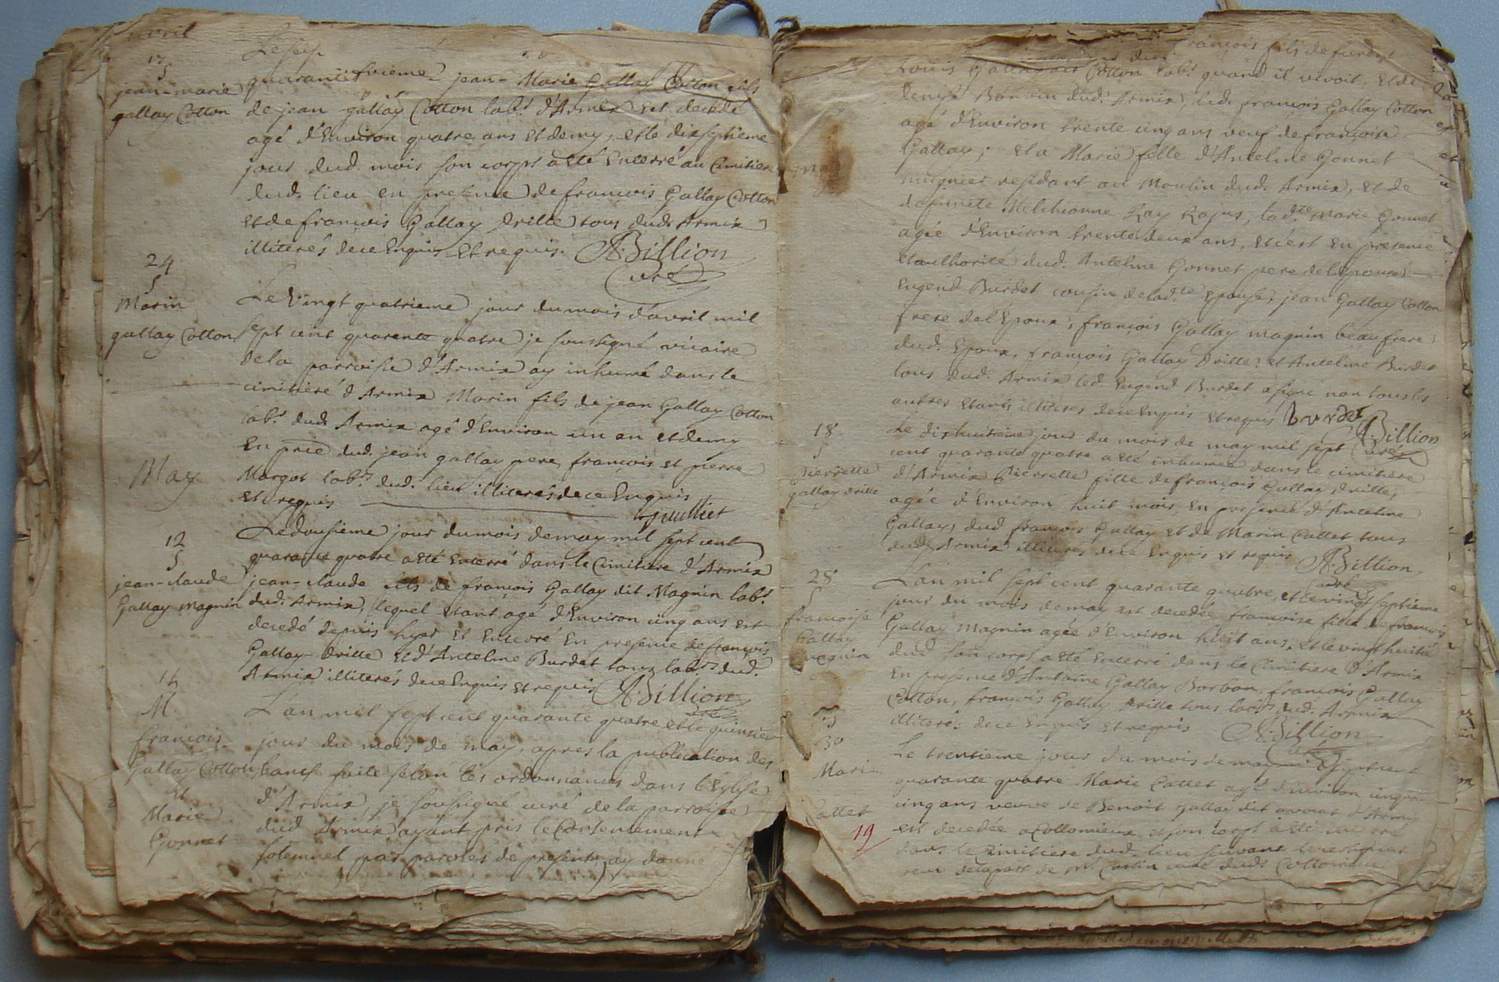 avril
17
S
jean-marie
gallay Cotton
quarante jean-Marie Gallay Cotton fils
de jean gallay Cotton labr. d'Armix est decedé
agé d'Environ quatre ans et demy, et le dixseptieme
jour dud. mois son corps a eté Enterré au Cimitiere
dud. lieu en presence de francois Gallay Cotton
et de francois Gallay Drille tous dud. Armix
illiterés de ce Enquis et requis. A. Billion
Curé
24
S
Marin
gallay Cotton
Le Vingt quatrieme jour du mois d'avril mil
sept cent quarente quatre je soussigné vicaire
de la parroisse d'Armix ay inhumé dans le
cimitieré d'Armix Marin fils de jean Gallay Cotton
labr. dud. Armix agé d'Environ un an et demy
En pnce dud. jean gallay pere, francois et pierre
Margot labrs. dud. lieu illiterés de ce Enquis
et requis
Juilliet
May
12
S
jean-claude
Gallay Magnin
Le dousieme jour du mois de may mil sept cent
quarante quatre a eté Enterré dans le Cimitiere d'Armix
jean-claude fils de francois Gallay dit Magnin labr.
dud. Armix, lequel etant agé d'Environ cinq ans est
decedé depuis hyer et Enterré En presence de francois
Gallay Drille et d'Anteline Burdet tous labrs. dud.
Armix illiterés de ce Enquis et requis A. Billion
Curé
M
francois
Gallay Cotton
et
Marie
Gonnet
L'an mil sept cent quarante quatre et le quinsieme
jour du mois de may, apres la publication des
bancs faite selon les ordonnances dans l'Eglise
d'Armix je soussigné curé de la parroisse
dud. Armix ayant pris le Consentement
solemnel par paroles de present, ay donné
francois fils de furent
Louis Gallay dit Cotton labr. quand il vivoit, et de
dud. Armix, led. francois Gallay Cotton
agé d'Environ trente cinq ans veuf de francoise
Gallay; et a Marie fille d'Anteline Gonnet
residant au Moulin dud. Armix, et de
Melchionne Ray Rojus, lad.te Marie Gonnet
agée d'Environ trente deux ans, et c'est En presence
et authorité dud. Anteline Gonnet pere de l'epouse,
Eugend Burdet cousin de lad.te Epouse, jean Gallay Cotton
frere de l'Epoux, francois Gallay magnin beaufrere
dud. Epoux, francois Gallay Drille, et Anteline Burdet
tous dud. Armix led. Eugend Burdet a signé non tous les
autres etants illiterés de ce Enquis et requis Burdet
A. Billion
Curé
18
S
pierrette
gallay drille
Le dixhuitieme jour du mois de may mil sept
cent quarante quatre a eté inhumée dans le cimitiere
d'Armix Pierrette fille de francois Gallay Drille,
agée d'Environ huit mois, En presence d'Anteline
Gallay, dud. francois Gallay et de Marin Cattet tous
dud. Armix illiterés de ce Enquis et requis A. Billion
Curé
28
S
francoise
Gallay
magnin
L'an mil sept cent quarante quatre, et le vingt septieme
jour du mois de may est decedée francoise fille de francois
Gallay Magnin agée d'Environ huit ans, et le vingt huitie
dud. son corps a eté Enterré dans le Cimitiere d'Armix
En presence d'Antoine Gallay Borbon, francois Gallay
Cotton, francois Gallay Drille tous labrs. dud. Armix
illiterés de ce Enquis et requis A. Billion
Curé
30
Marie
Cattet
19
Le trentieme jour du mois de may
quarante quatre Marie Cattet agée d'Environ
cinq ans veuve de Benoit gallay dit d'Armix
est decedée a Collomieux et son corps a eté enterré
dans le Cimitiere dud. lieu suivant
de la part de Mr curé dud. Collomieu